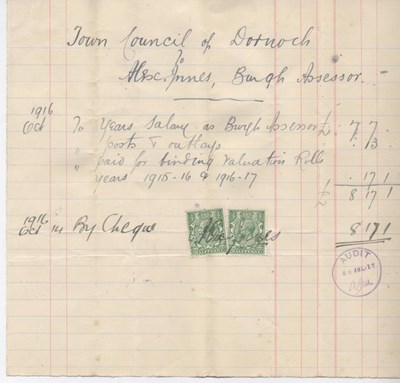 Town Council of Dornoch
To
Alex. Innes, Burgh Assessor.
1916
Oct To Years Salary as Burgh Assessor £ 7 7 .
" posts & outlays . 13 .
" paid for binding Valuation Rolls
years 1915-16 & 1916-17 . 17 1
£ 8 17 1
1916
Oct By Cheque 8 17 1
AUDIT